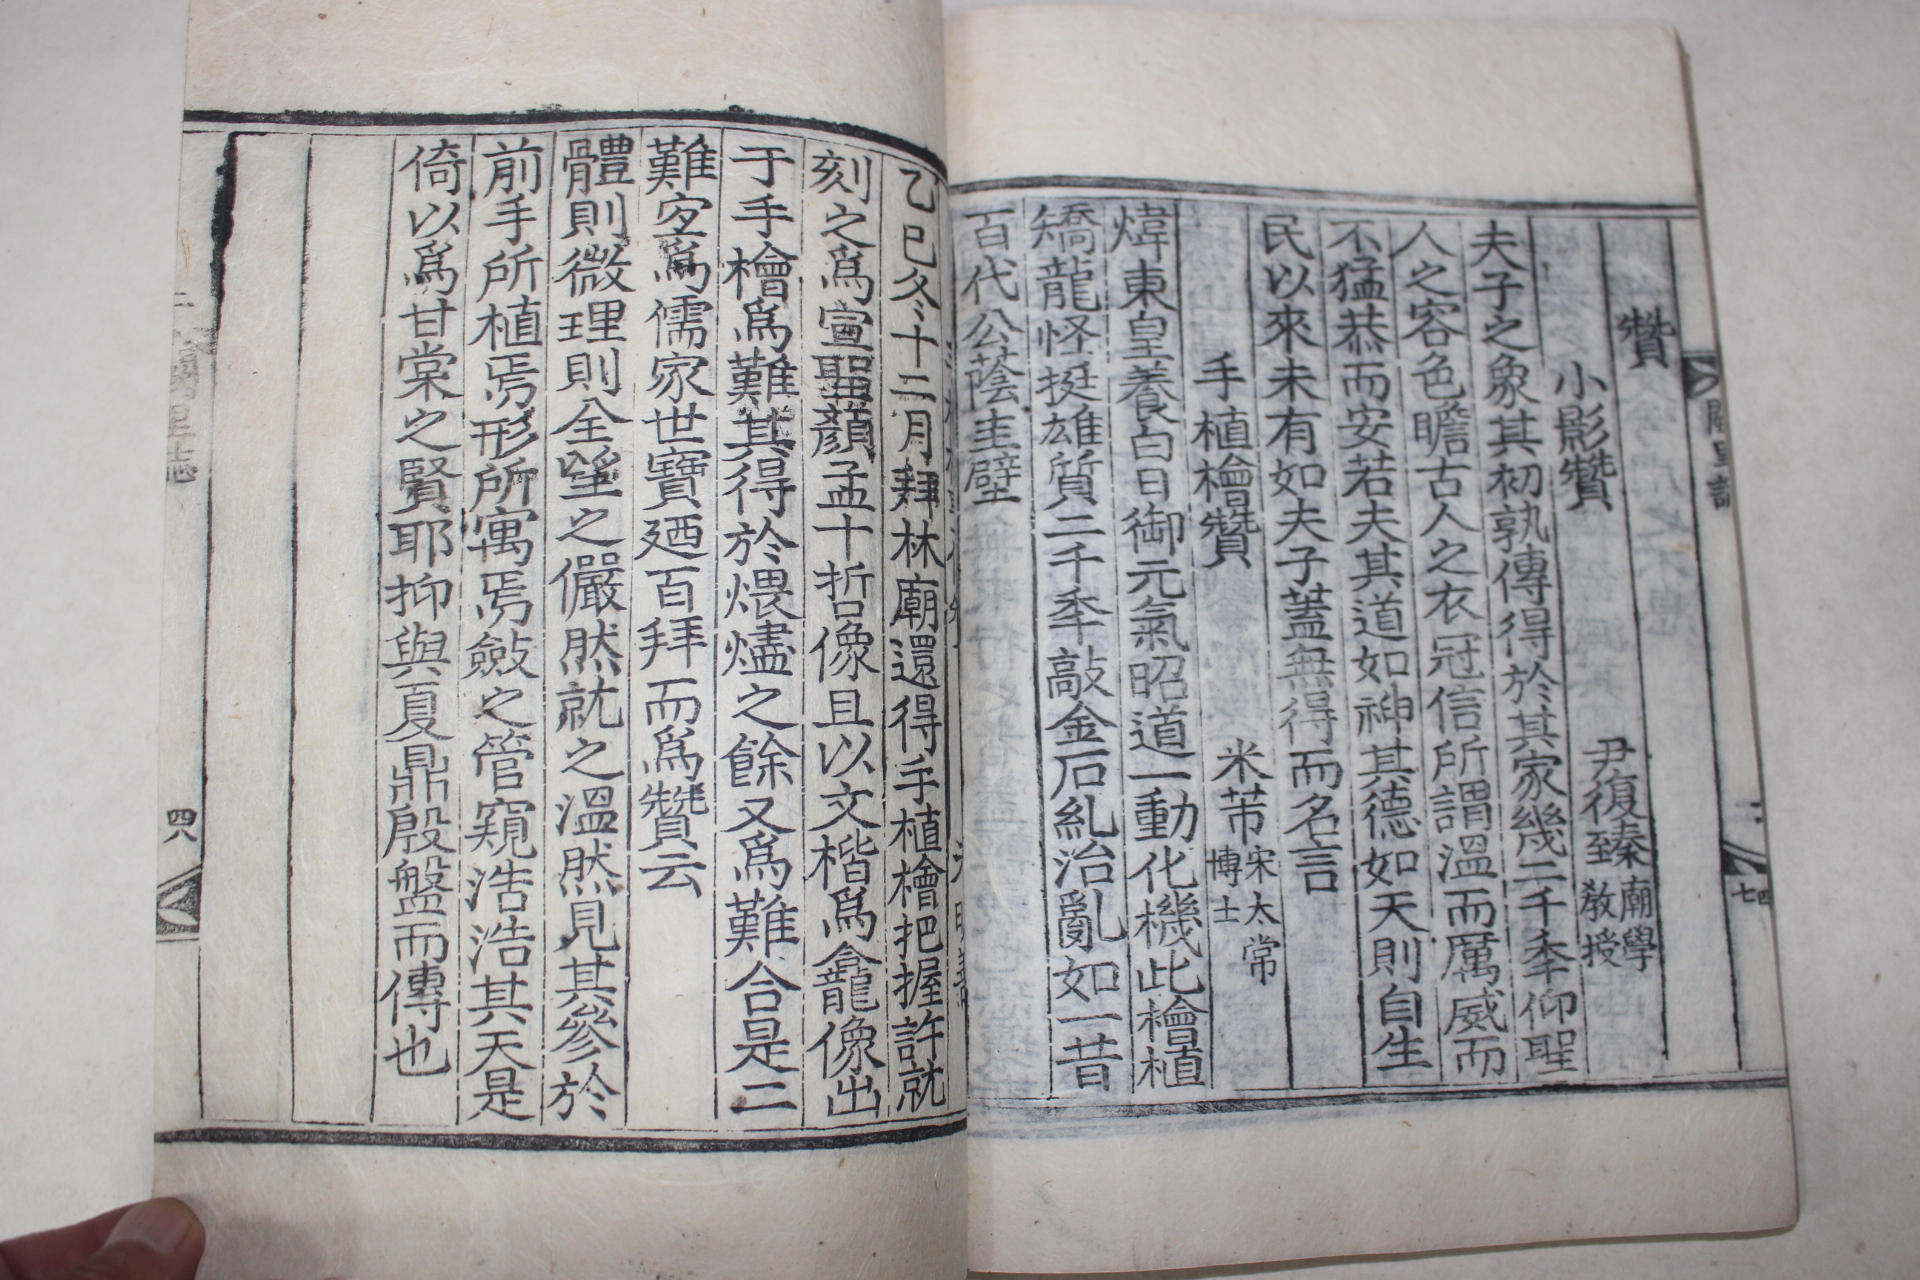 贊
小影贊 尹復臻 廟學教授
夫子之象其初孰傳得於其家幾二千年仰聖
人之容色瞻古人之衣冠信所謂溫而厲威而
不猛恭而安若夫其道如神其德如天則自生
民以來未有如夫子蓋無得而名言
手植檜贊 米芾 宋太常博士
煒東皇養白日御元氣昭道一動化機此檜植
矯龍怪挺雄質二千年敲金石糺治亂如一昔
百代公蔭圭璧
闕里誌
二
四七
乙巳冬十二月拜林廟還得手植檜把握許就
刻之爲宣聖顏孟十哲像且以文楷爲龕像出
于手檜爲難其得於煨燼之餘又爲難合是二
難定爲儒家世寶廼百拜而爲贊云
體則微理則全望之儼然就之溫然見其參於
前手所植焉形所寓焉斂之管窺浩浩其天是
倚以爲甘棠之賢耶抑與夏鼎殷盤而傳也
二
闕里誌
四八